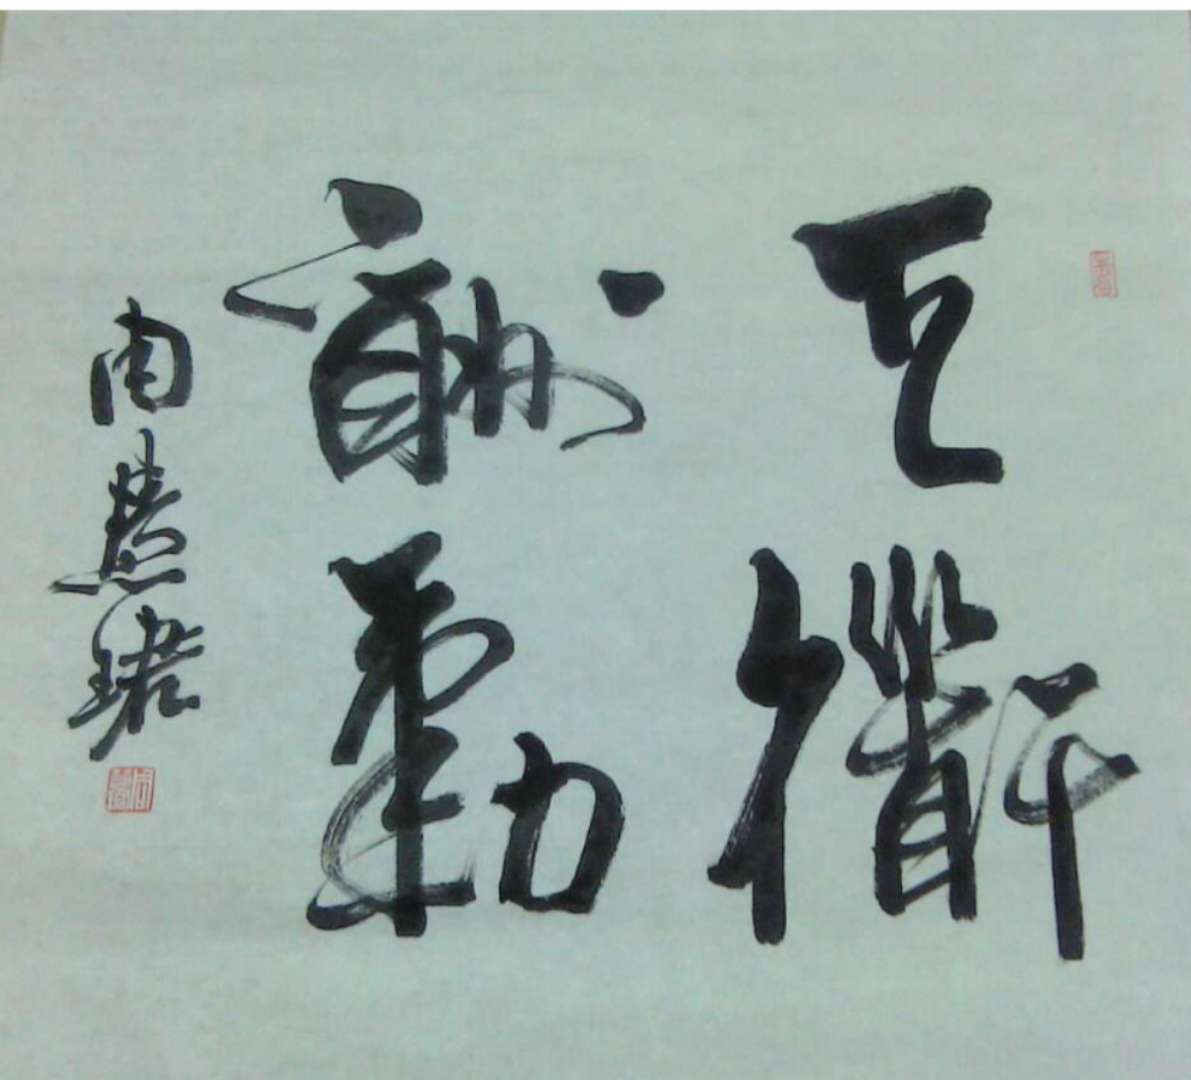 天道
酬勤
周慧珺